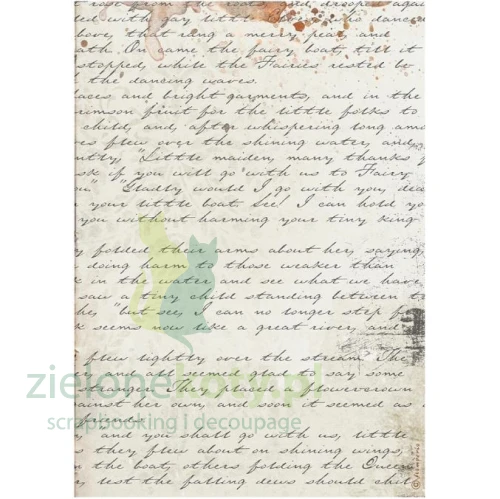 led with gay little
bove, that rang a merry peal and
ath. On came the fairy boat, till it
stopped, while the Fairies rested by
the dancing waves.
aces and bright garments, and in the
rimson fruit for the little folks to
child, and, after whispering long amo
es flew over the shining water, and
ntly, "Little maiden, many thanks f
sk if you will go with us to Fairy
ou." "Gladly would I go with you, dea
your little boat. See! I can hold yo
you without harming your tiny king
y folded their arms about her, saying,
doing harm to those weaker than
k in the water and see what we have
saw a tiny child standing between t
he, "but see, I can no longer step f
k seems now like a great river, and
flew lightly over the stream. The
er, and all seemed glad to say some
stranger. They placed a flowercrown
ainst her own, and soon it seemed as
friends.
, "and you shall go with us, little
s they flew about on shining wings,
n the boat, others folding the Queen
r, lest the falling dews should chill
zielonekoty.pl
scrapbooking | decoupage